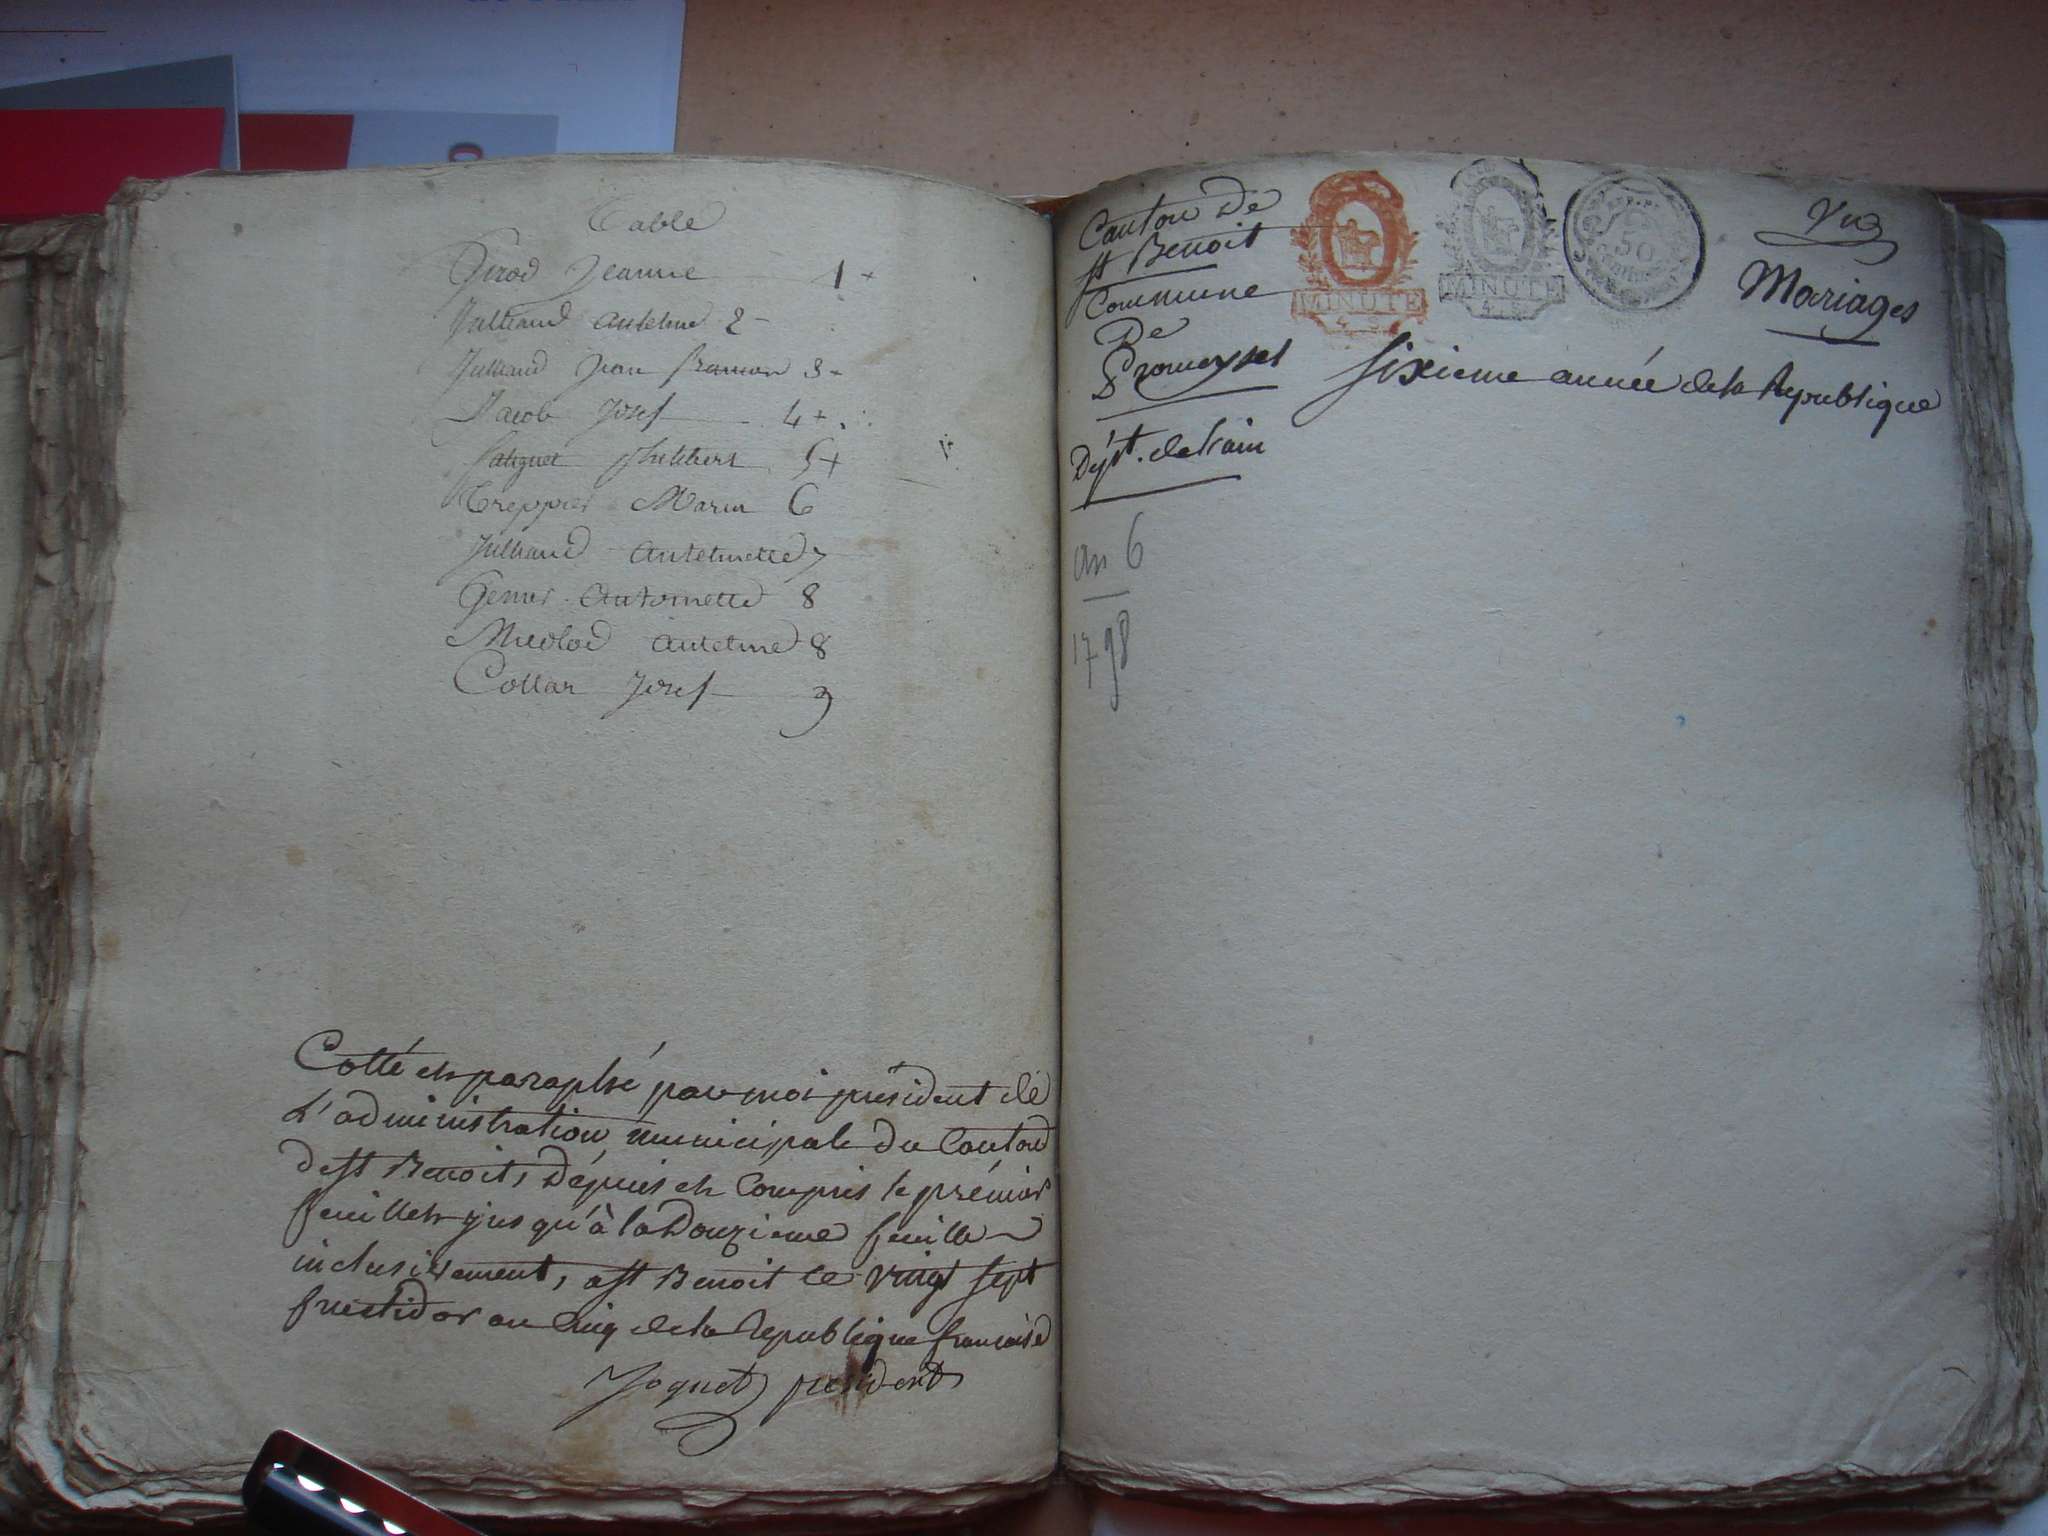 Table
Girod Jeanne 1 +
Julliand antelme 2 -
Julliand Jean 3 -
Jacob Josef 4 +
5 +
Treppier Marin 6
Julliand antelmette 7
antoinette 8
antelme 8
Collar Josef 9
Cotté et paraphé par moi président de
L'administration municipale du Canton
de St Benoit, Dépuis et Compris le prémier
feuillet jusqu'à la Douzieme feuille
inclusivement, a St Benoit le vingt sept
fructidor an Cinq de la Republique francaise
Joguet president
Canton De
St Benoit
Commune
De
Dépt. de l'ain
an 6
1798
MINUTE
MINUTE
50
Centimes
Vu
Mariages
Sixieme année de la Republique